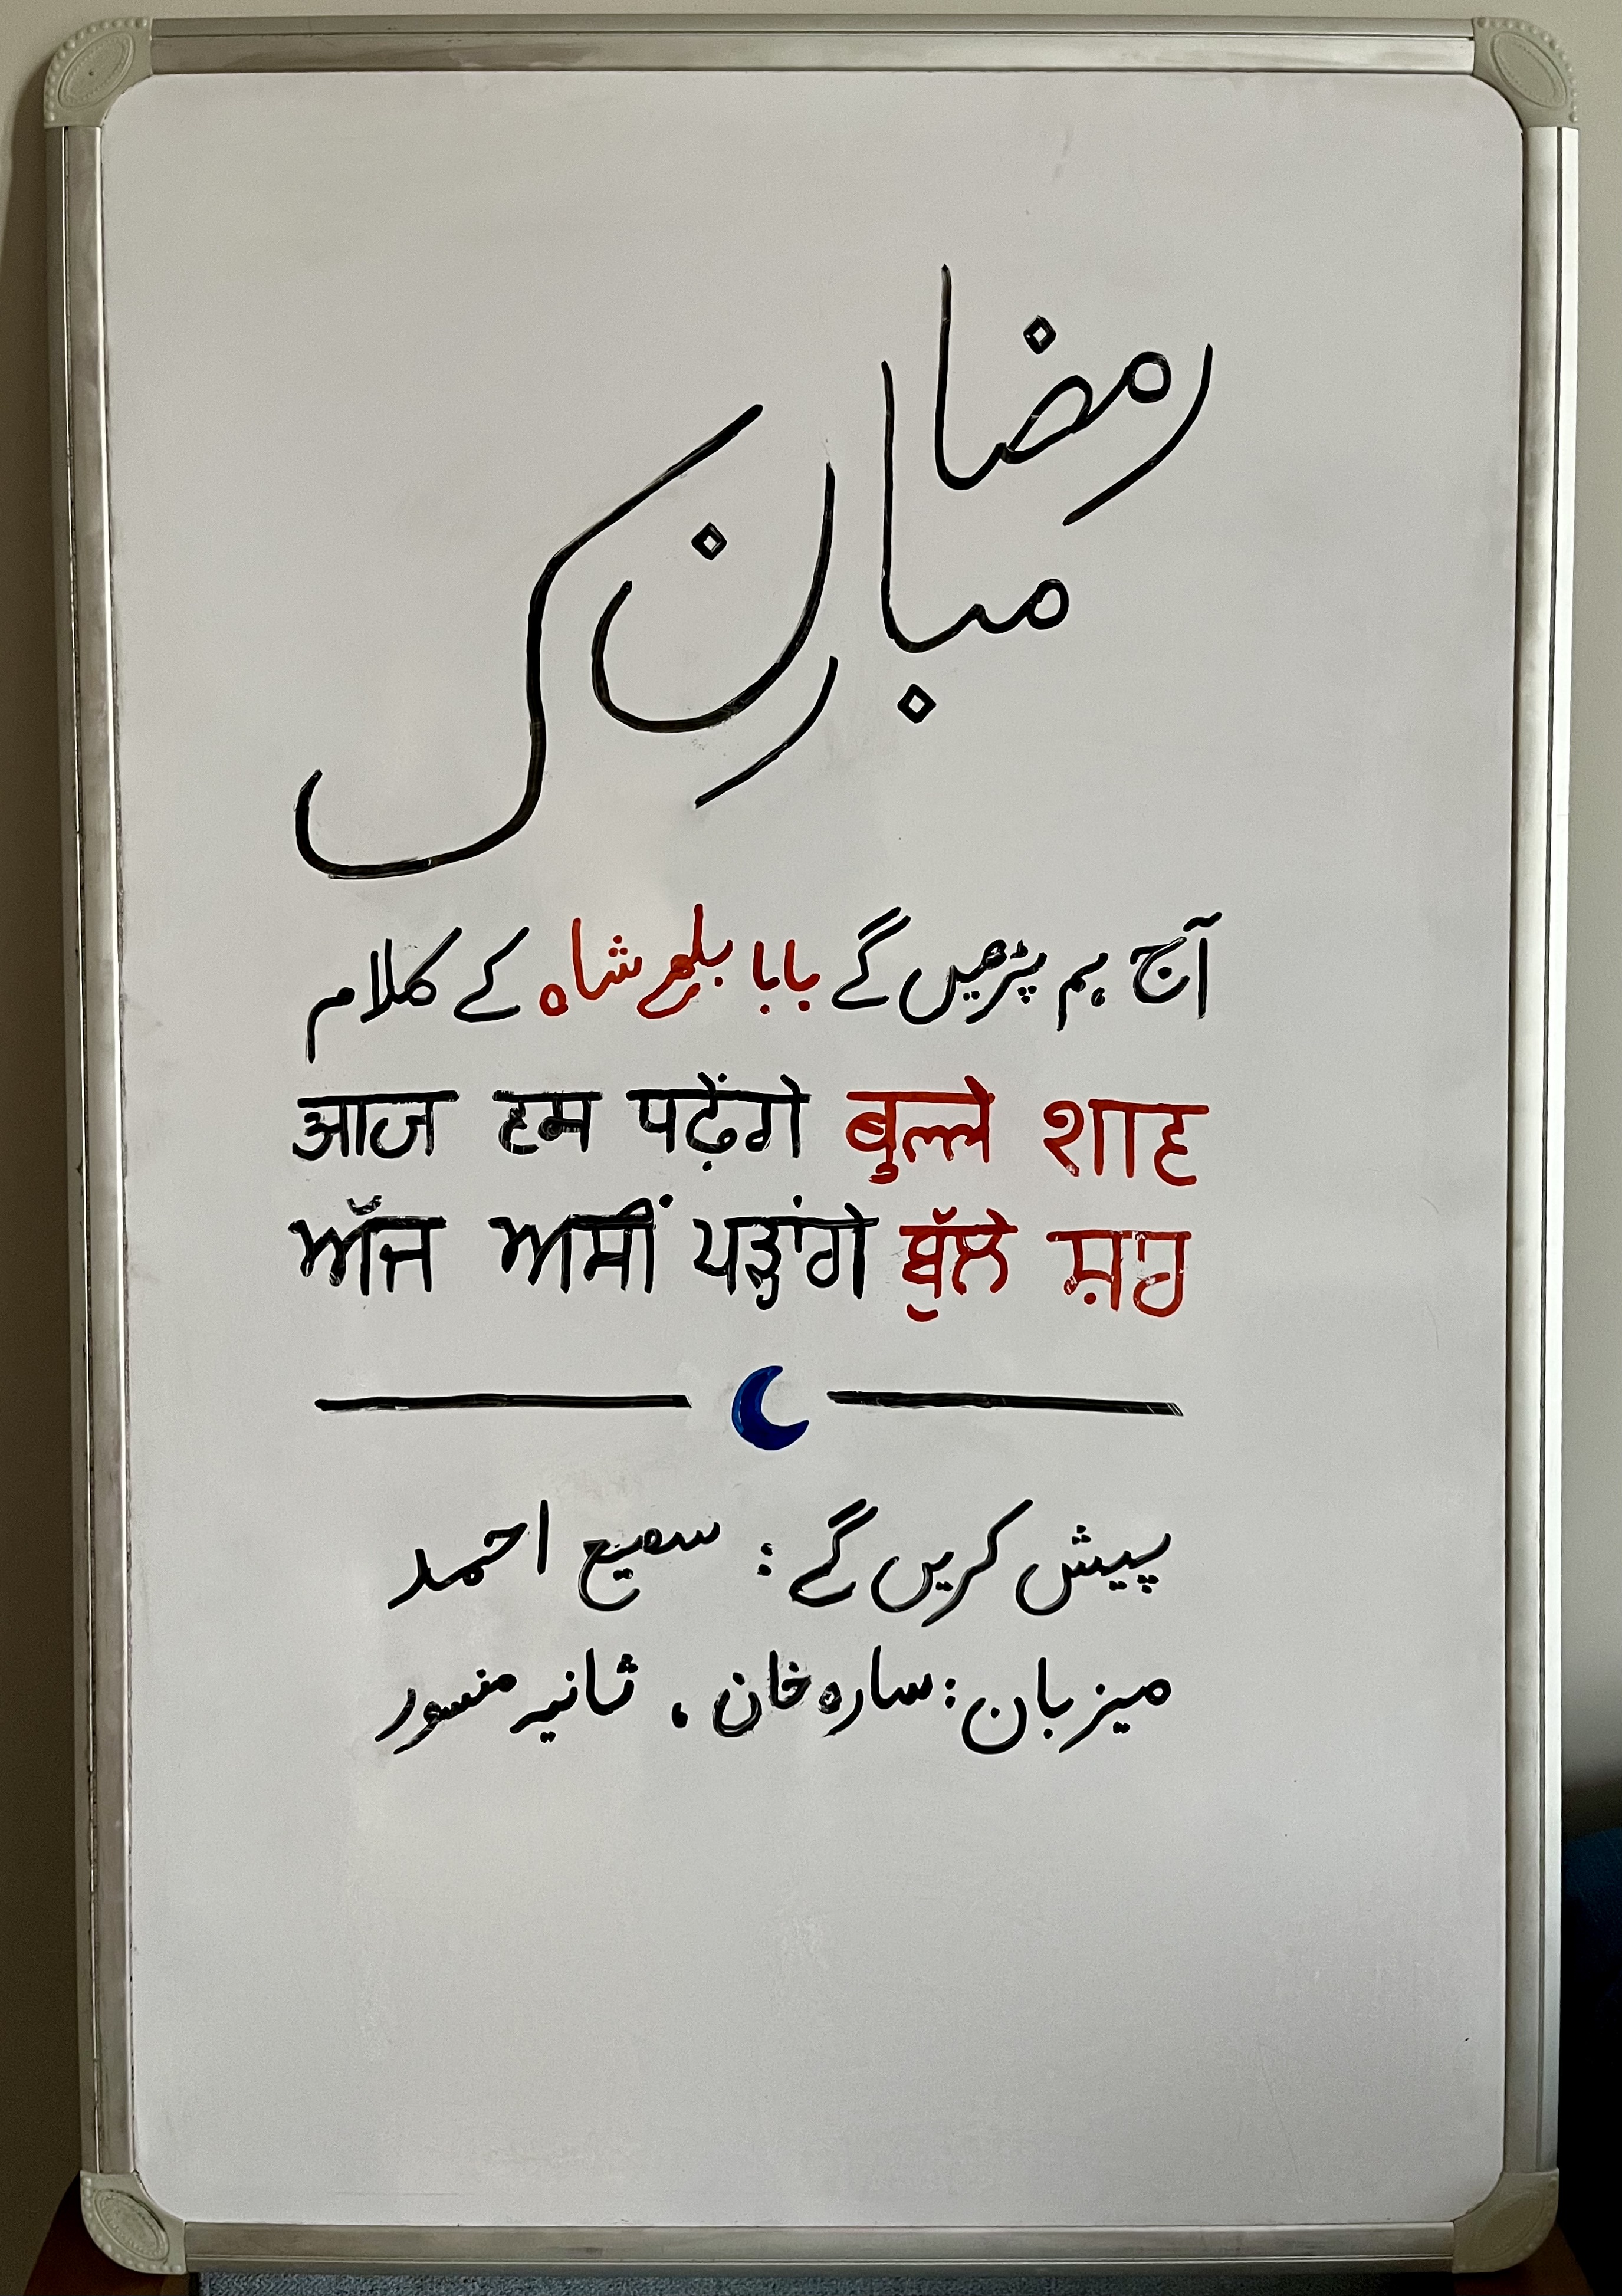 رمضان
مبارک
آج ہم پڑھیں گے بابا بلھے شاہ کے کلام
आज हम पढ़ेंगे बुल्ले शाह
ਅੱਜ ਅਸੀਂ ਪੜ੍ਹਾਂਗੇ ਬੁੱਲੇ ਸ਼ਾਹ
پیش کریں گے: سمیع احمد
میزبان: سارہ خان، ثانیہ منسور